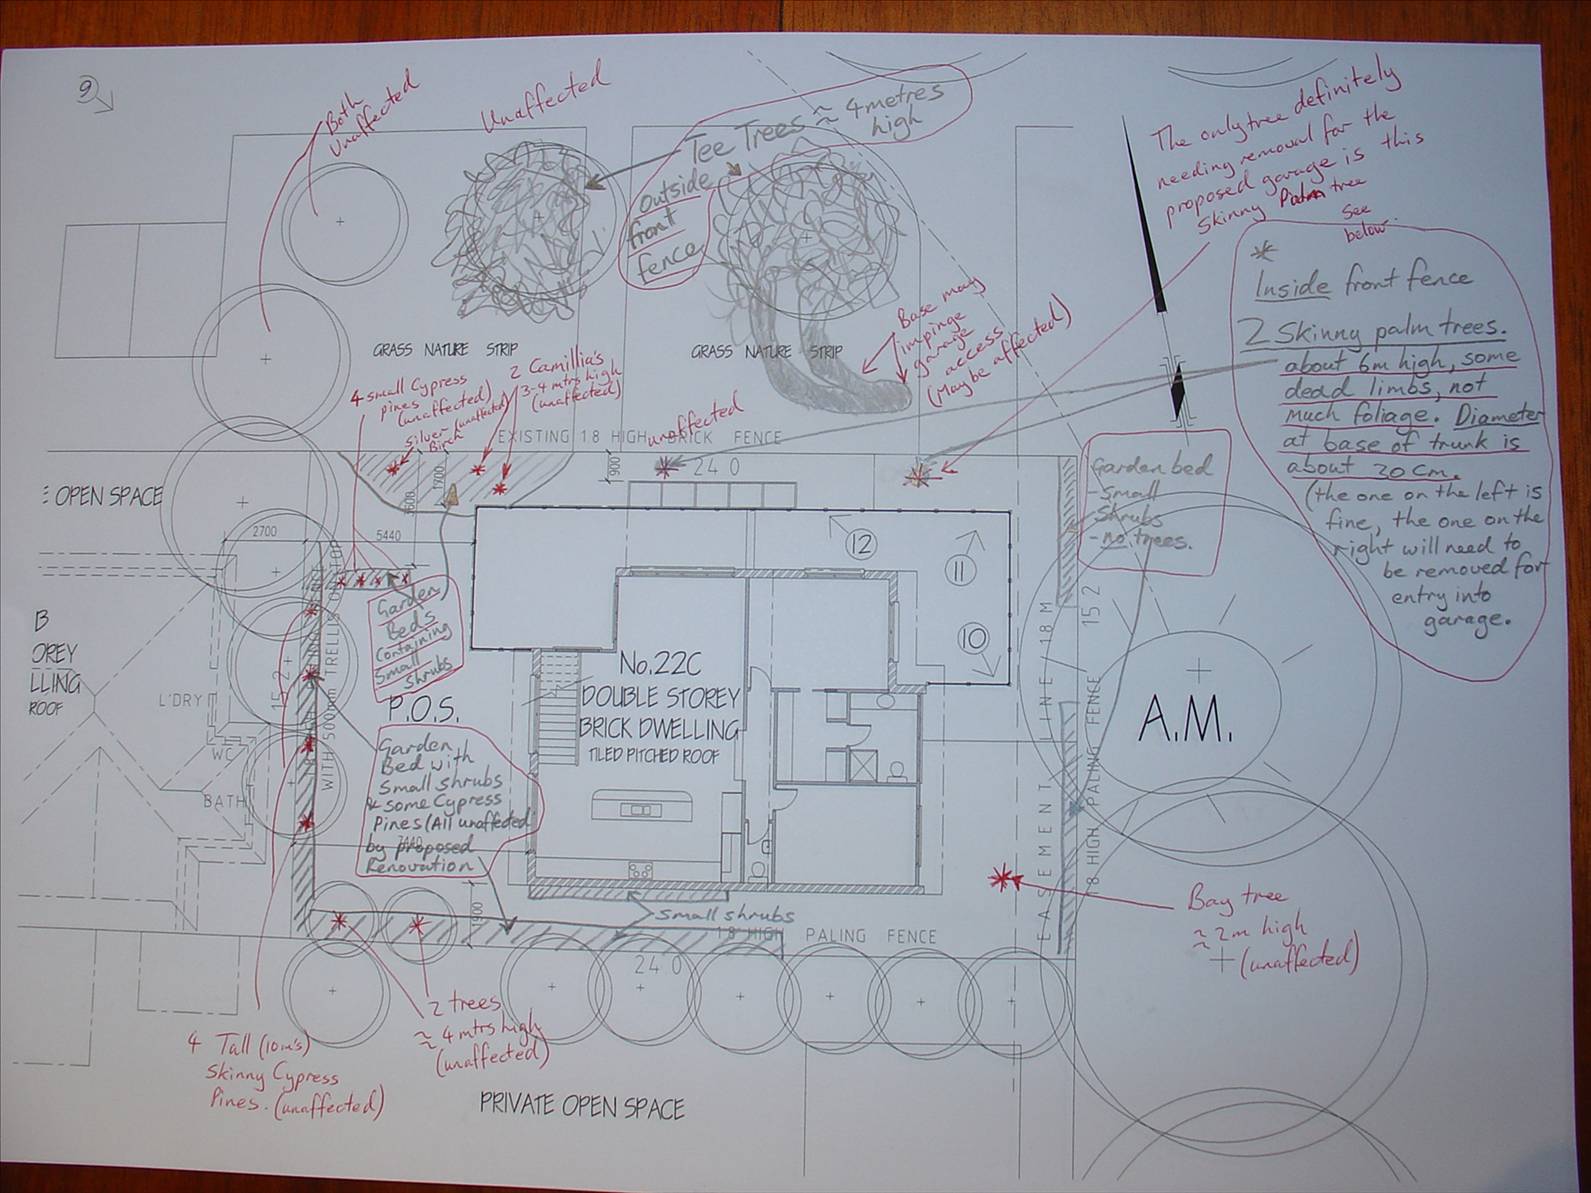 9
Both
Unaffected
Unaffected
Tee Trees ≈ 4 metres
high
outside
front
fence
The only tree definitely
needing removal for the
proposed garage is this
Skinny Palm tree
See
below
*
Inside front fence
2 Skinny palm trees.
about 6m high, some
dead limbs, not
much foliage. Diameter
at base of trunk is
about 20cm.
(the one on the left is
fine, the one on the
right will need to
be removed for
entry into
garage.
GRASS NATURE STRIP
GRASS NATURE STRIP
Base may
impinge
garage
access
(May be affected)
4 small Cypress
pines
(unaffected)
silver (unaffected)
Birch
2 Camillia's
3-4 mtrs high
(unaffected)
unaffected
EXISTING 1.8 HIGH BRICK FENCE
24.0
900
1700
OPEN SPACE
2700
5440
Garden bed
- Small
Shrubs
- no trees.
12
11
10
Garden
Beds
Containing
Small
shrubs
B
OREY
LLING
ROOF
L'DRY
WC
BATH
15.2
WITH 500mm TRELLIS ON TOP
P.O.S.
No.22C
DOUBLE STOREY
BRICK DWELLING
TILED PITCHED ROOF
Garden
Bed with
Small shrubs
& some Cypress
Pines (All unaffected
by proposed
Renovation
7440
EASEMENT LINE 1.8M
15.2
1.8 HIGH PALING FENCE
A.M.
Small shrubs
900
1.8 HIGH PALING FENCE
24.0
Bay tree
≈ 2m high
(unaffected)
2 trees
≈ 4 mtrs high
(unaffected)
4 Tall (10m's)
Skinny Cypress
Pines. (unaffected)
PRIVATE OPEN SPACE